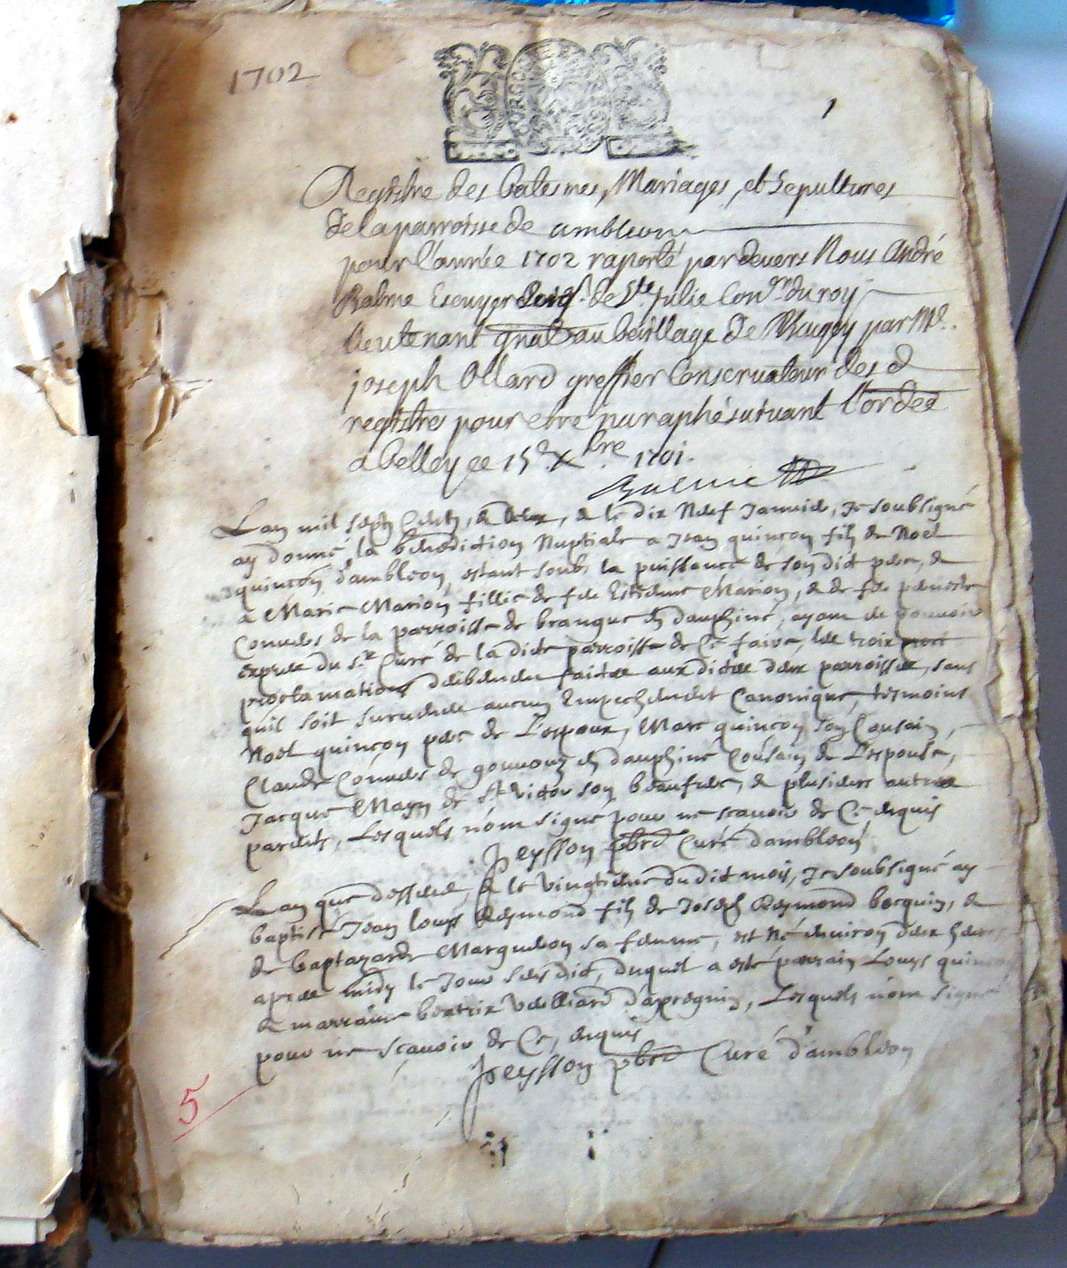 1702
1
Registre des batesmes, Mariages, et sepultures
de la parroisse de ambleon
pour l'année 1702 raporté pardevers Nous André
Balme Escuyer seigr. de Ste Julie Conser du roy
lieutenant gnal au bailliage de Beugey par Me.
joseph Ollard greffier Conservateur des d
registres pour etre paraphé suivant l'ordce
a belley ce 15e Xbre 1701.
Balme
Lan mil sept Cents, & deux, & le dix Neuf Janvier, Je soubsigné
ay donné la bénédiction Nuptiale a Jean quinçon fils de Noel
quinçon d'ambleon, estant soubs la puissance de son dict pere, &
a Marie Marion fillie de feu Estienne Marion, & de feu
de la parroisse de brangue en dauphiné, ayant eu pouvoir
du sr. Curé de la dicte parroisse de Ce faire, les trois
proclamations faictes aux dictes deux parroisses, sans
quil soit survenu aucun Empechement Canonique, tesmoins
Noel quinçon pere de L'espoux, Marc quinçon son Cousin,
Claude de en dauphiné Cousin de L'espouse,
Jacque de st victor son beaufrere, & plusieurs autres
parents, Lesquels n'ont signé pour ne scavoir de Ce enquis
Peysson pbre Curé d'ambleon
Lan que dessus, & le vingtieme du dit mois, Je soubsigné ay
baptisé Jean louys Reymond fils de Joseph Reymond bocquin, &
de sa femme, est né environ deux heures
apres midy le Jour susdict, duquel a esté parrain Louys quinçon
& marraine beatrix d'apregnin, Lesquels n'ont signé
pour ne sçavoir de Ce, enquis
Peysson pbre Curé d'ambleon
5